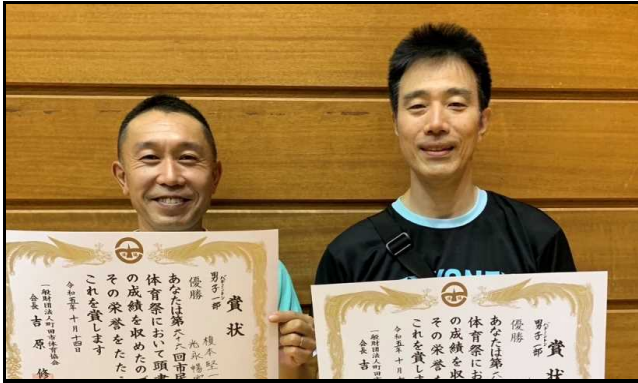 賞状
男子一部
優勝
榎本
あなたは第 回市民
体育祭において頭書
の成績を収めたの
その栄誉をたた
これを賞します
令和五年十月十四日
一般財団法人町田市体育協会
会長 吉原 修
YONE
賞状
男子一部
優勝
あなたは第
体育祭にお
の成績を収
その栄誉
これを賞し
令和五年十月十
一般財団法人町田
会長 吉